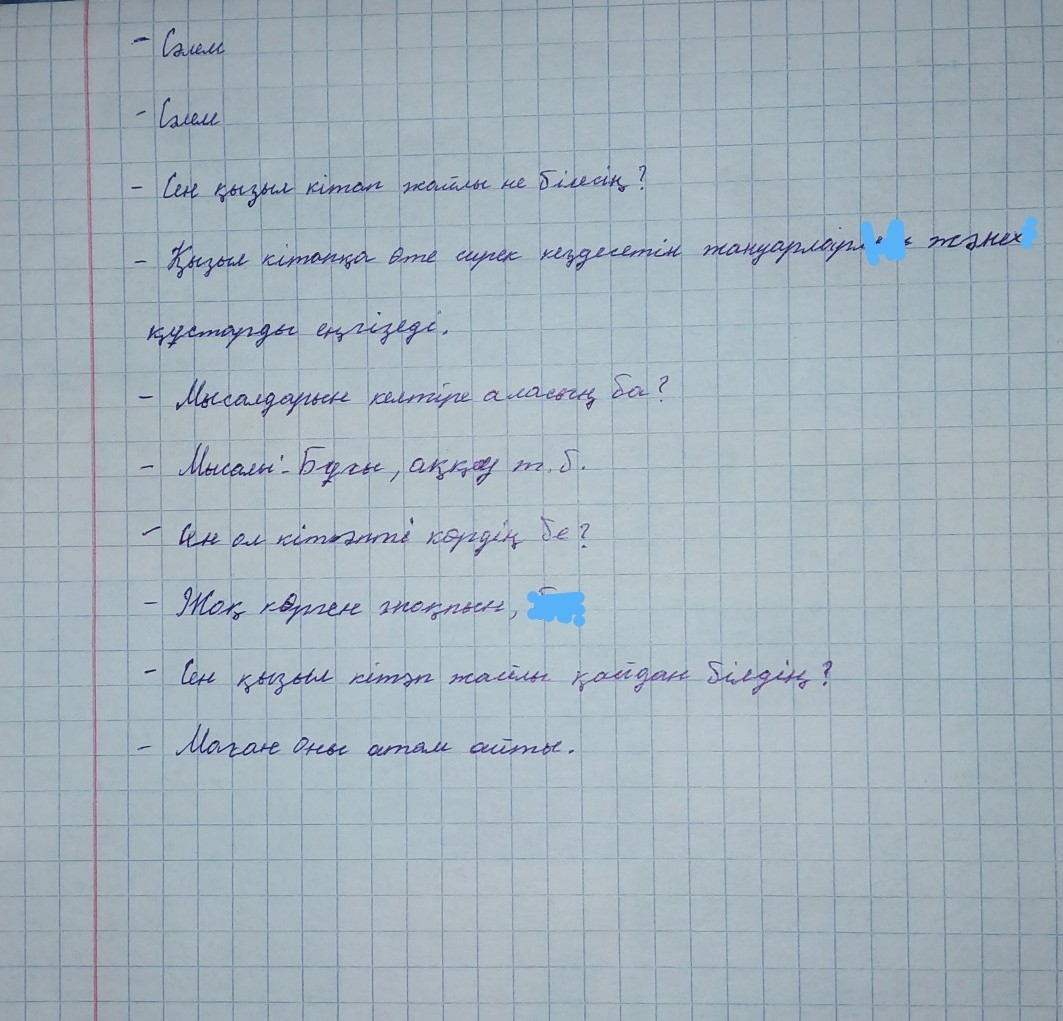 - Сәлем
- Сәлем
- Сен қызыл кітап жайлы не білесің?
- Қызыл кітапқа өте сирек кездесетін және
құстарды еңгізеді.
- Мысалдарын келтіре аласың ба?
- Мысалы:-Бұғы, аққу т.б.
- Сен ол кітәпті көрдің бе?
- Жоқ көрген жоқпын,
- Сен қызыл кітәп жайлы қайдан білдің?
- Маған оны атам айты.